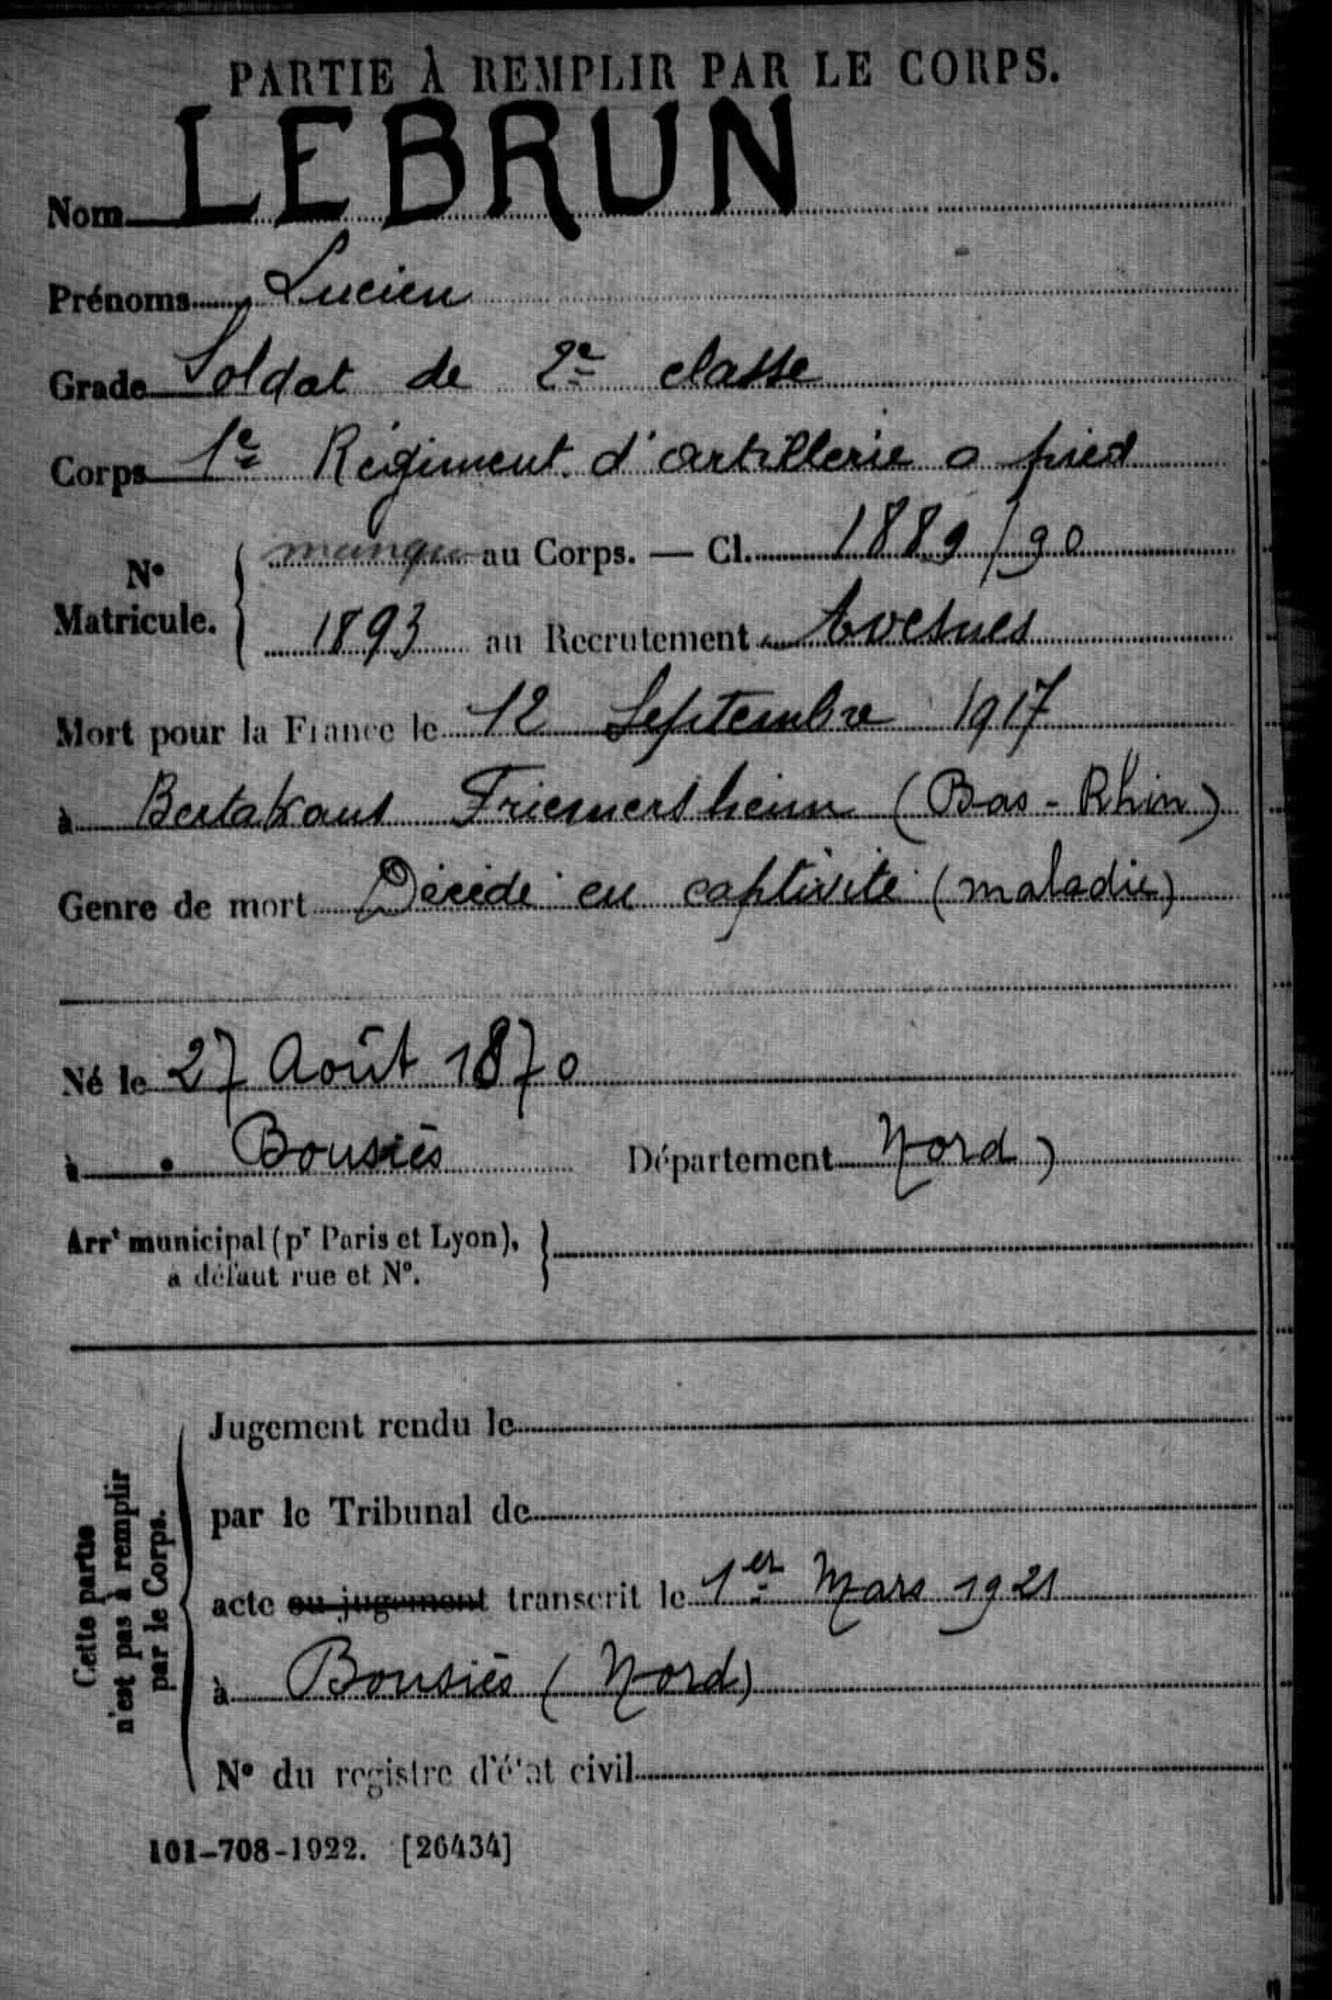 PARTIE À REMPLIR PAR LE CORPS.
Nom LEBRUN
Prénoms Lucien
Grade Soldat de 2e classe
Corps 1e Régiment d'artillerie a pied
N° Matricule. { manque au Corps. — Cl. 1889/90
1893 au Recrutement Avesnes
Mort pour la France le 12 Septembre 1917
à Bertakaus Friemersheim (Bas-Rhin)
Genre de mort Décédé en captivité (maladie)
Né le 27 Août 1870
à Bousies Département Nord)
Arrt municipal (pr Paris et Lyon), }
à défaut rue et N°.
Cette partie n'est pas à remplir par le Corps.
Jugement rendu le
par le Tribunal de
acte ou jugement transcrit le 1er Mars 1921
à Bousiès (Nord)
N° du registre d'état civil
101-708-1922. [26434]